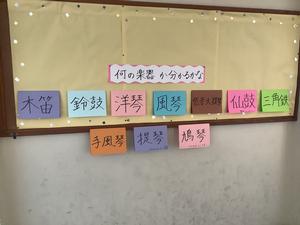 何の楽器か分かるかな
木笛
鈴鼓
洋琴
風琴
仙鼓
三角鉄
手風琴
提琴
鳩琴